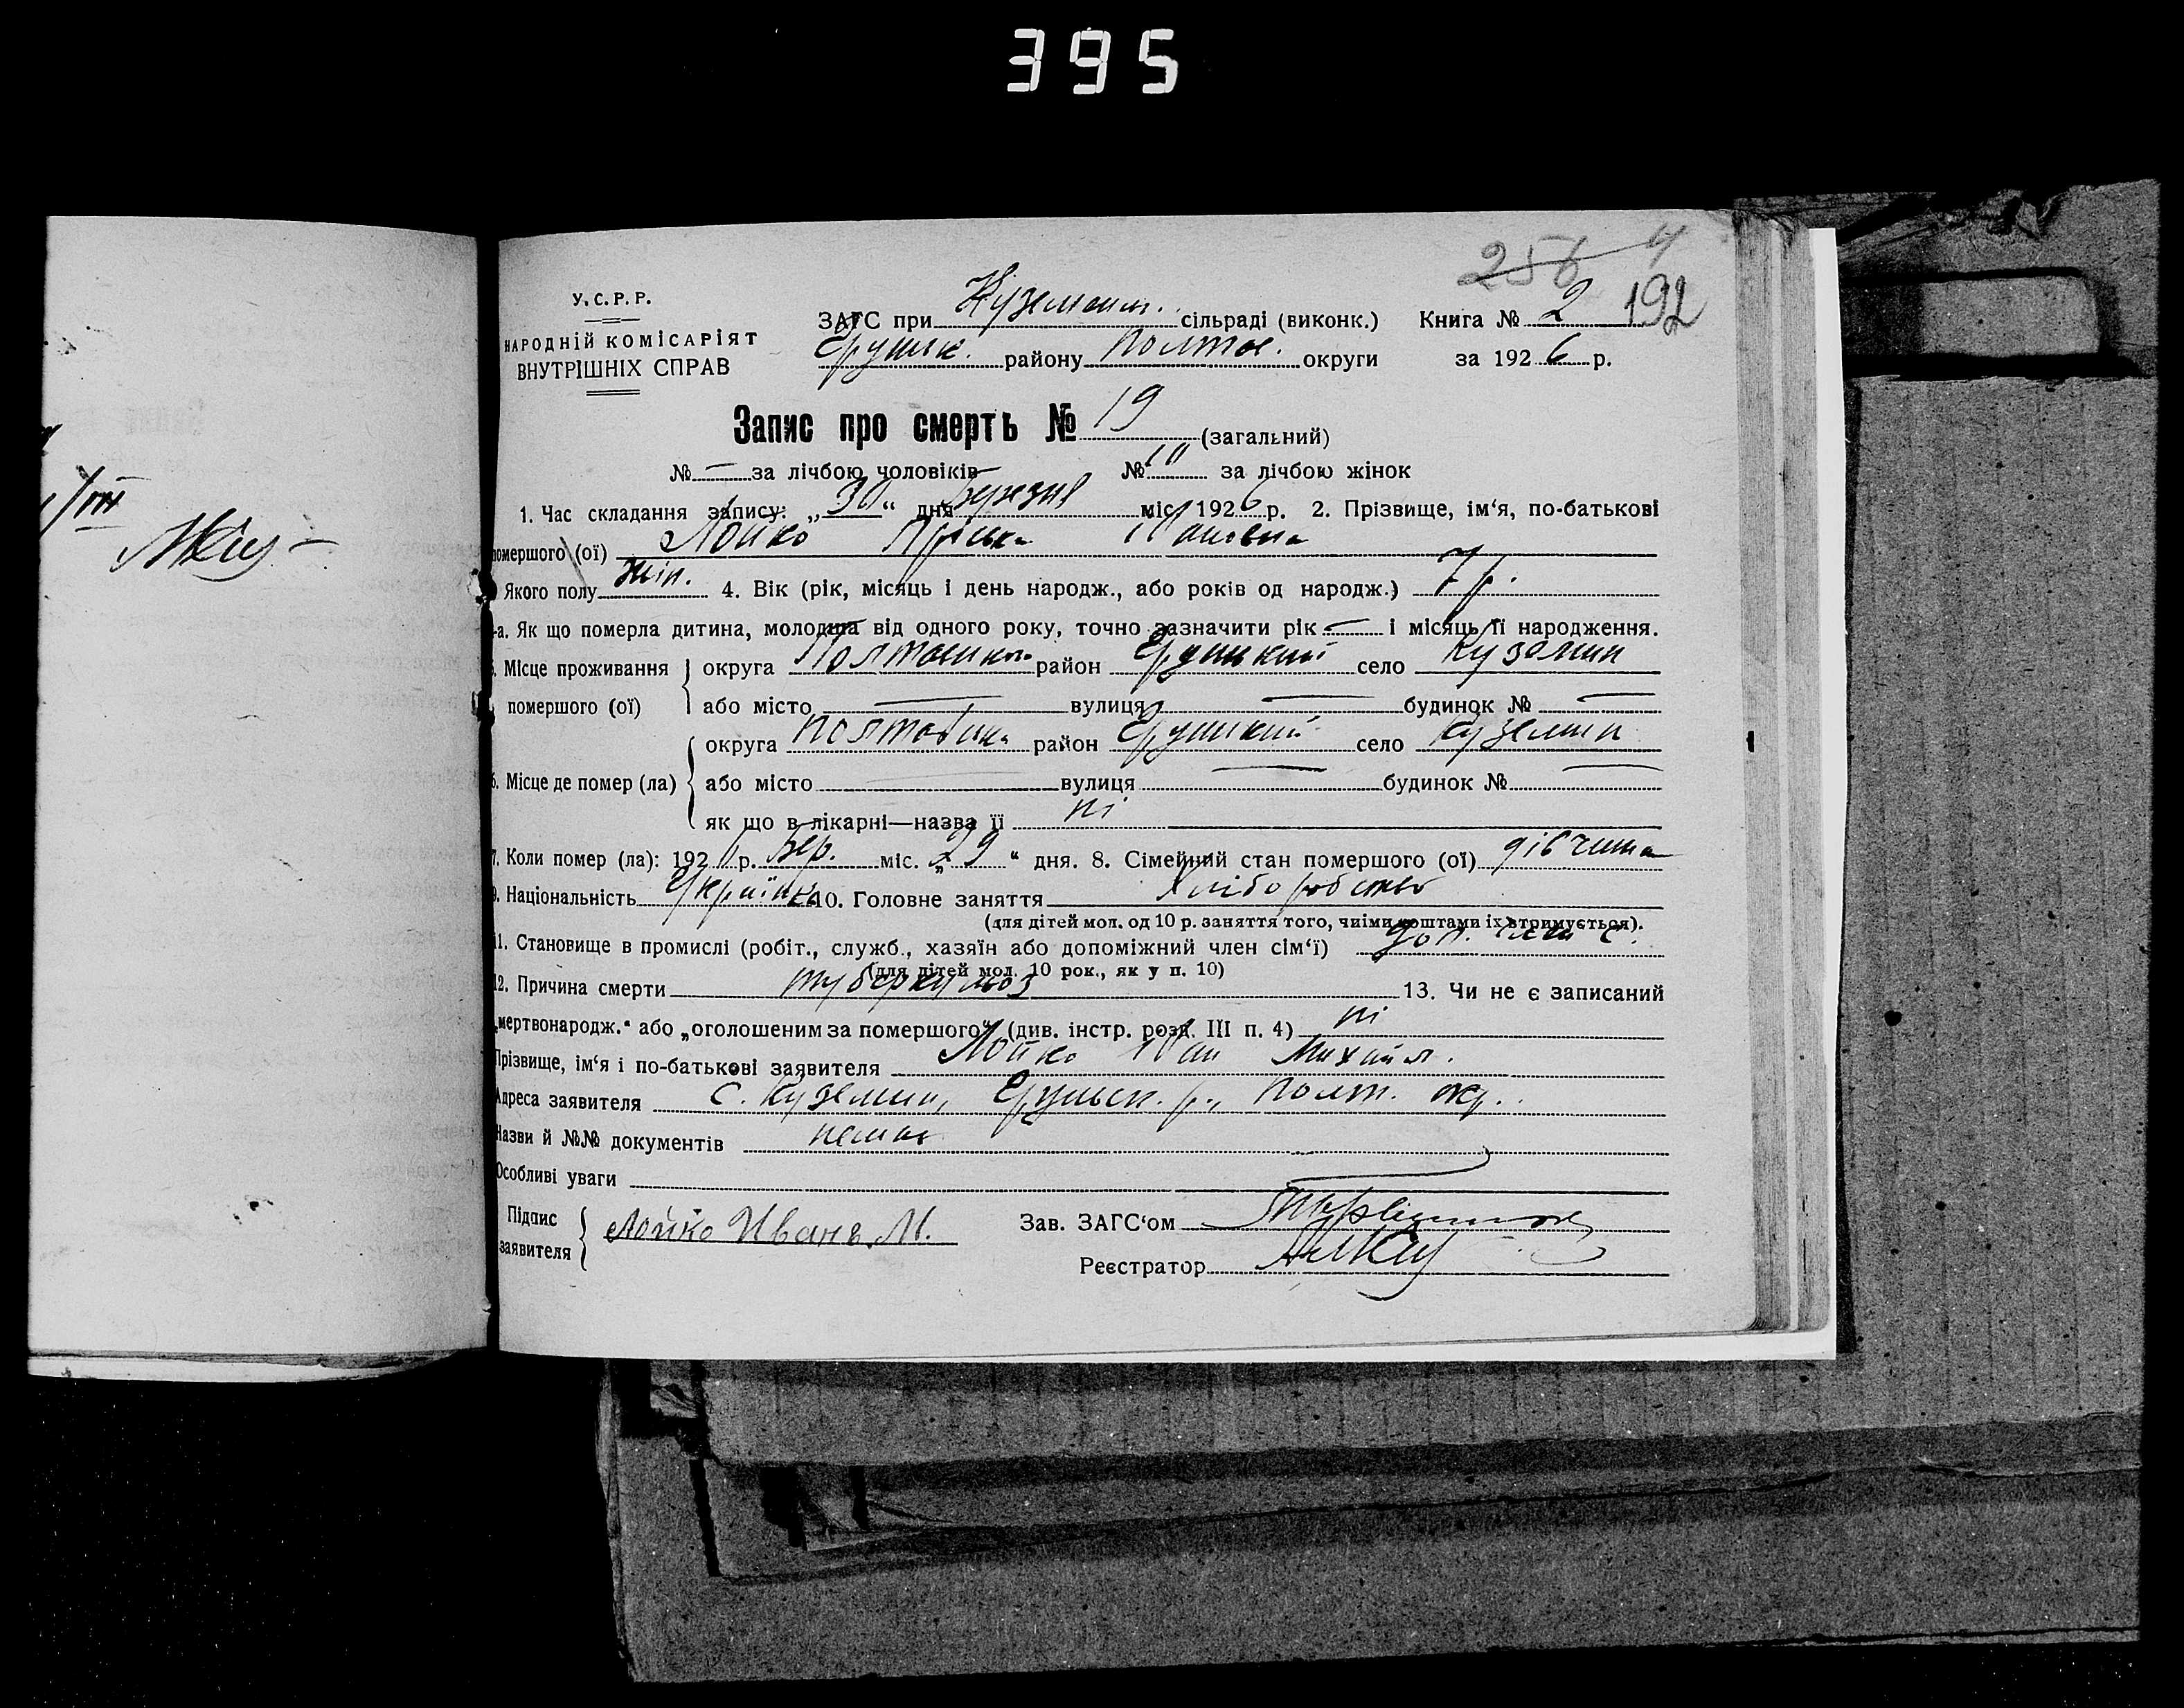 395
256 4
192
У.С.Р.Р.
НАРОДНІЙ КОМІСАРІЯТ
ВНУТРІШНІХ СПРАВ
ЗАГС при Куземин. сільраді (виконк.) Книга № 2
Грунськ. району Полтав. округи за 1926 р.
Запис про смерть № 19 (загальний)
№ — за лічбою чоловіків № 10 за лічбою жінок
1. Час складання запису: „30“ дня Березня міс. 1926 р. 2. Прізвище, ім‘я, по-батькові
помершого (ої) Лойко Пріська Івановна
Якого полу жін. 4. Вік (рік, місяць і день народж., або років од народж.) 7 р.
-а. Як що померла дитина, молодша від одного року, точно зазначити рік — і місяць її народження.
5. Місце проживання помершого (ої) округа Полтавська район Грунський село Куземин
або місто — вулиця — будинок № —
6. Місце де помер (ла) округа Полтавська район Грунський село Куземин
або місто — вулиця — будинок № —
як що в лікарні—назва її ні
7. Коли помер (ла): 192 р. Бер. міс. „29“ дня. 8. Сімейний стан помершого (ої) дівчина
9. Національність Українка 10. Головне заняття Хліборобство
(для дітей мол. од 10 р. заняття того, чиїми коштами їх втримується).
11. Становище в промислі (робіт., служб., хазяїн або допоміжний член сім‘ї) доп. член с.
(для дітей мол. 10 рок., як у п. 10)
12. Причина смерти туберкульоз 13. Чи не є записаний
„мертвонародж.“ або „оголошеним за помершого“ (див. інстр. розд. III п. 4) ні
Прізвище, ім‘я і по-батькові заявителя Лойко Іван Михайл.
Адреса заявителя с. Куземин, Грунськ. р., Полт. окр.
Назви й №№ документів немає
Особливі уваги
Підпис заявителя Лойко Иванъ М. Зав. ЗАГС‘ом
Реєстратор